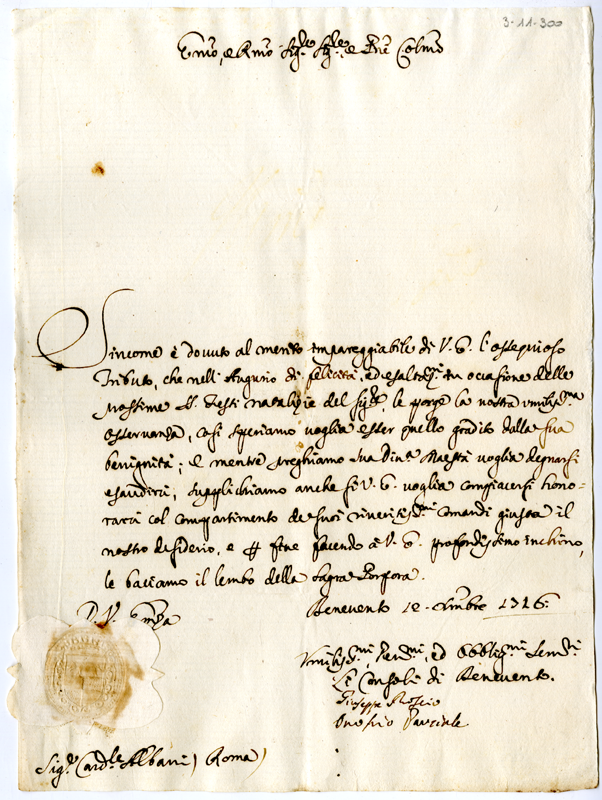 3-11-300
Emo, e Rmo Sigre Sigre e Pne Colmo
Sincome è dovuto al merito impareggiabile di V. E. l'ossequioso
tributo, che nell'Augurio di felicità, ed esaltazi in ocasione delle
prossime S. Feste natalizie del Sigre, le porge la nostra umilissma
osservanza, così speriamo voglia esser quello gradito dalla sua
benignità; e mentre preghiamo Sua Dina Maestà voglia degnarsi
esaudirci, supplichiamo anche si V. E. voglia compiacersi hono-
rarci col compartimento de suoi riveritissmi comandi giusta il
nostro desiderio, e p fine facendo à V. E. profondissimo inchino,
le baciamo il lembo della Sagra Porpora.
D. V. Emza
Benevento 12. Xmbre 1716.
Umilissmi, Devmi, ed Obbligmi Servri
Li Consoli di Benevento.
Giuseppe
Onofrio Pasciale
Sigr Cardle Albani) Roma)